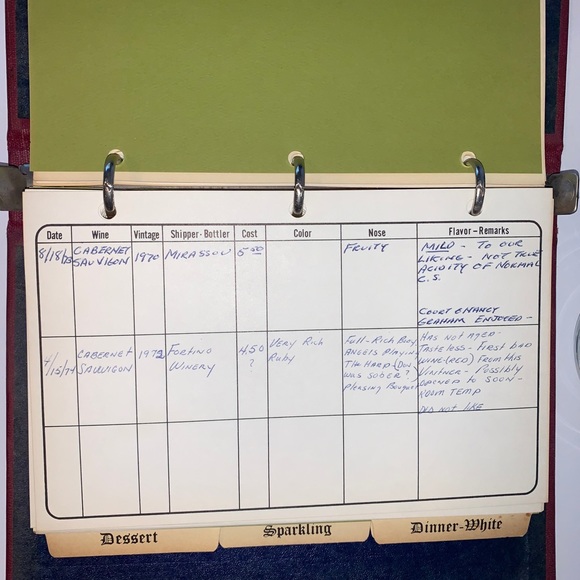 Date Wine Vintage Shipper-Bottler Cost Color Nose Flavor-Remarks
8/18/75 CABERNET SAUVIGON 1970 MIRASSOU 5.50 FRUITY MILD - TO OUR
LIKING - NOT TRUE
ACIDITY OF NORMAL
C.S.
COURT & NANCY
GRAHAM ENJOYED -
4/15/77 CABERNET SAUVIGON 1972 FORTINO WINERY 4.50 ? Very Rich Ruby
Full-Rich Body
ANGELS PLAYING
THE HARP - (DON
WAS SOBER?)
PLEASING BOUQUET
HAS NOT AGED -
TASTELESS - FIRST BAD
WINE (RED) FROM THIS
VINTNER - POSSIBLY
OPENED TO SOON -
ROOM TEMP
DID NOT LIKE
Dessert Sparkling Dinner-White